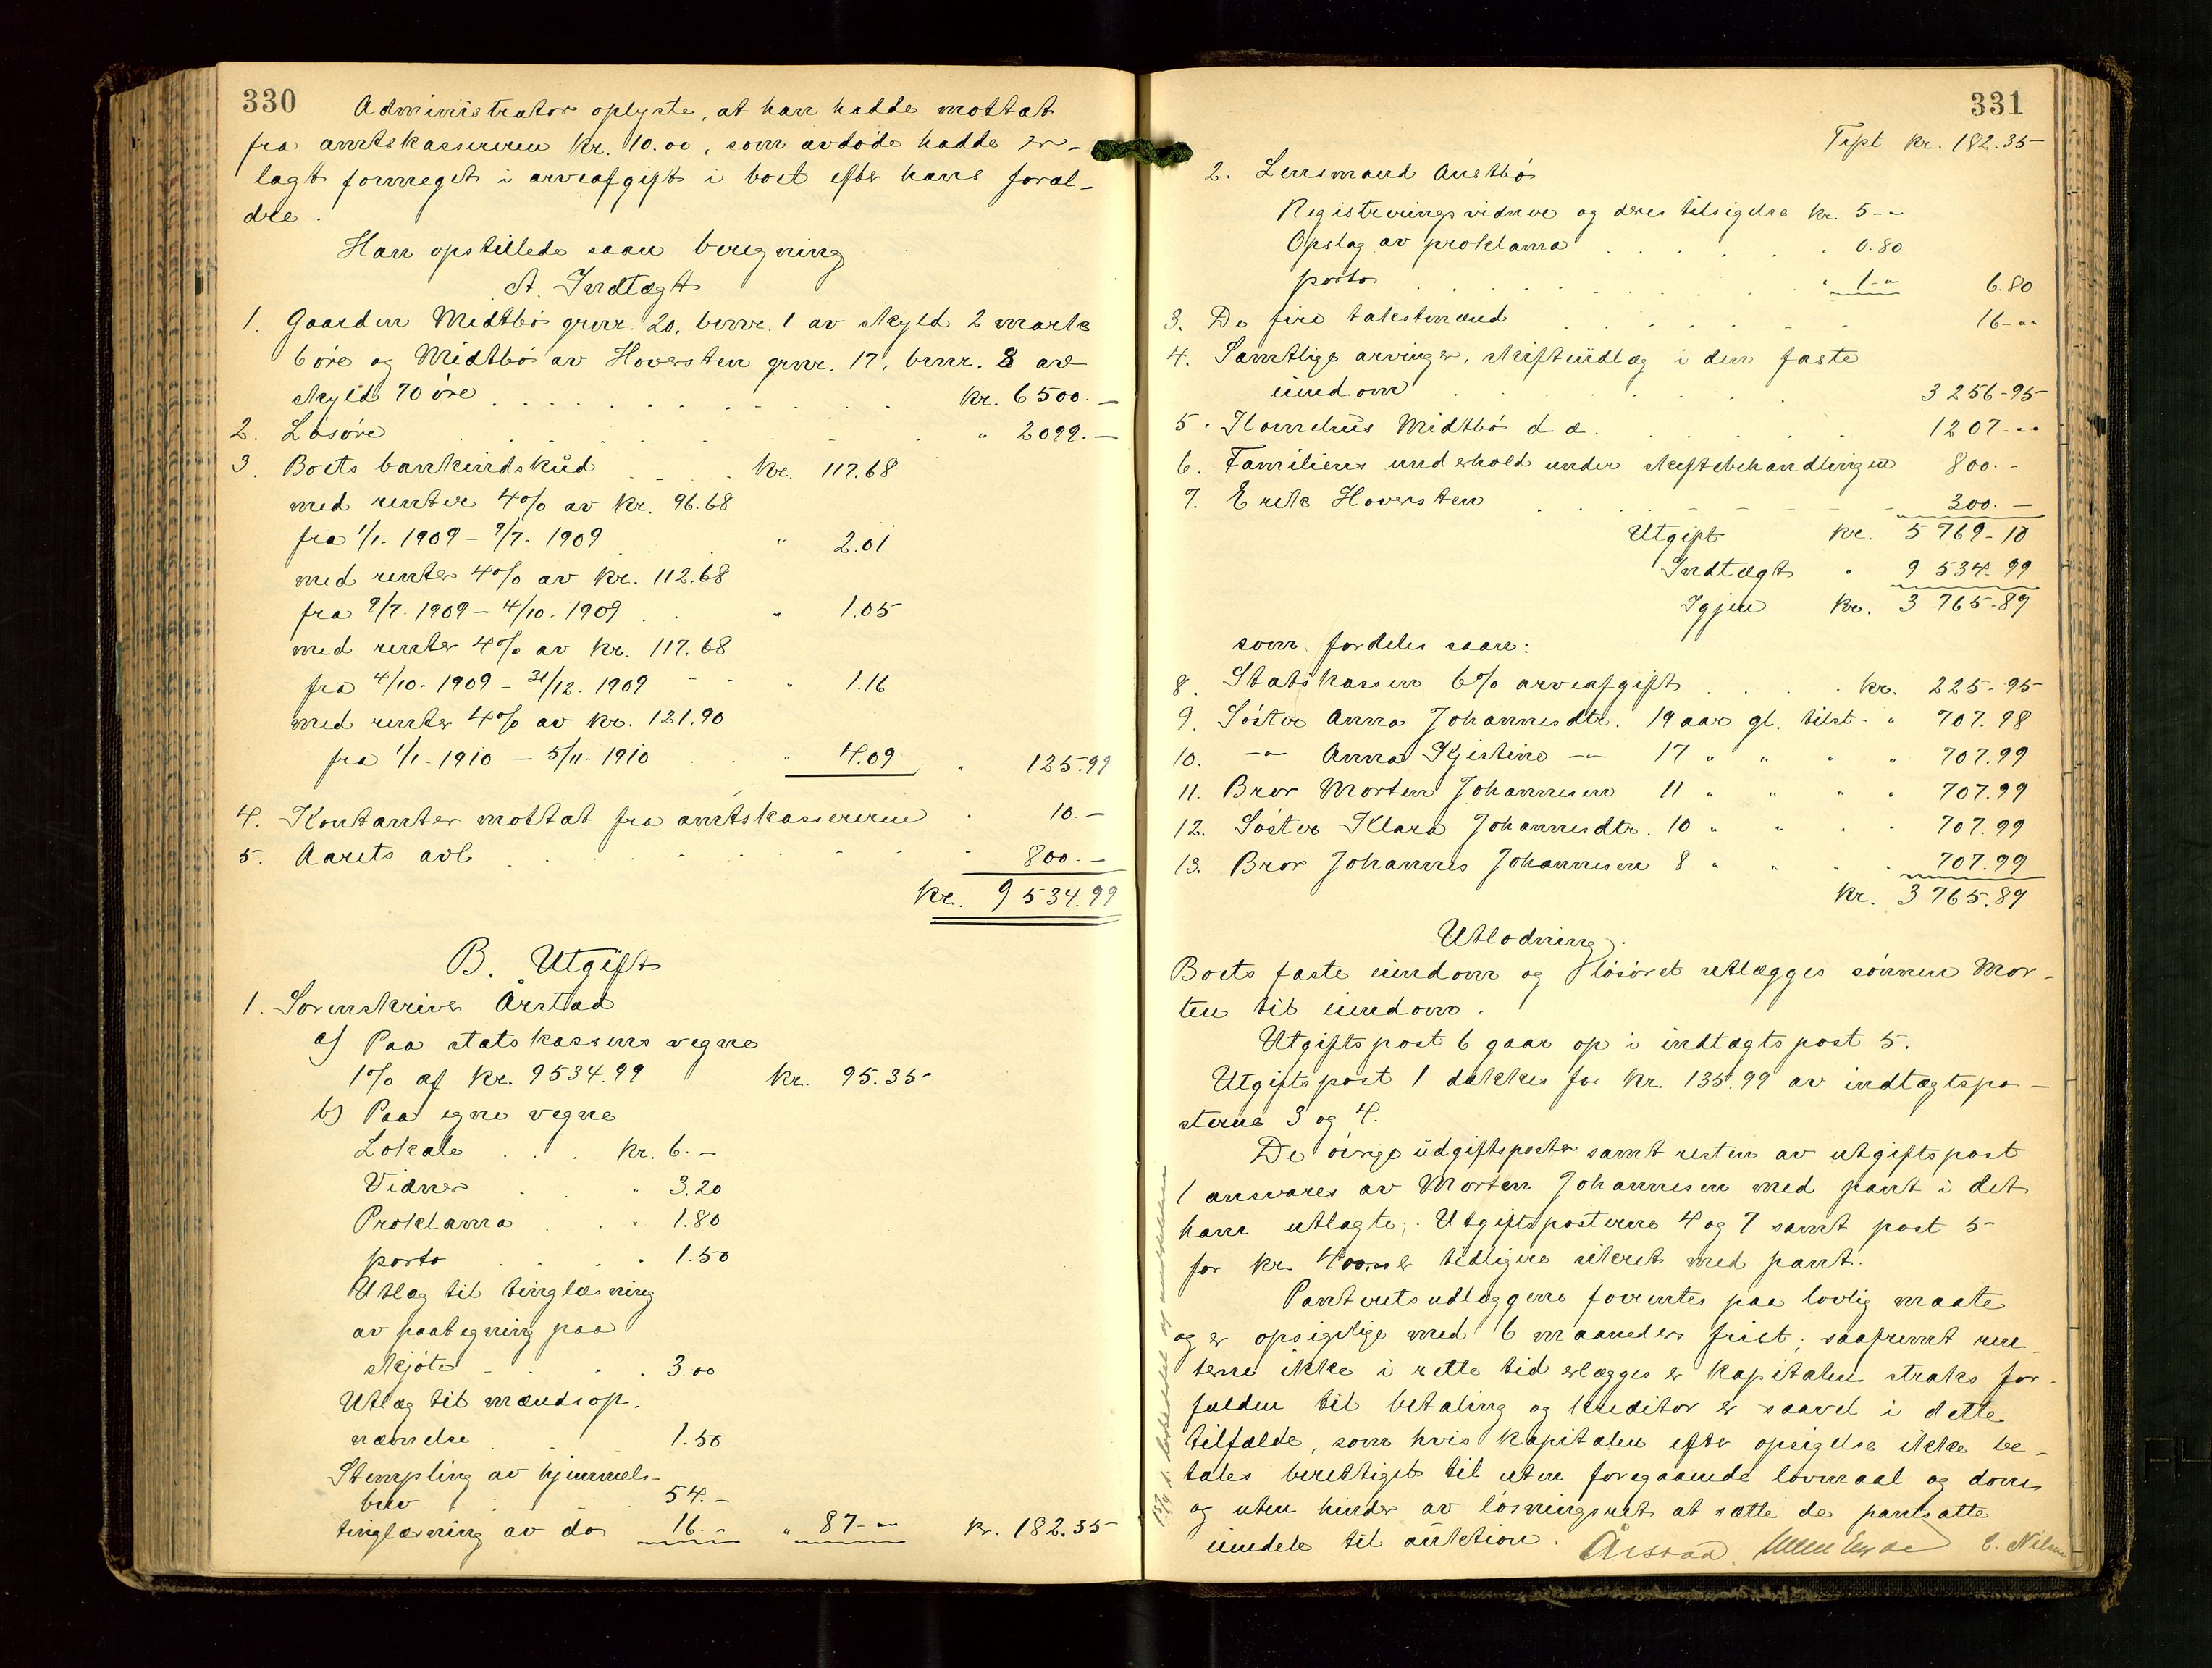 330
Administrator oplyste, at han hadde mottat
fra amtskassereren kr. 10.00, som avdöde hadde er-
lagt formeget i arveafgift i boet efter hans foræl-
dre.
Han opstillede saan beregning
A. Indtægt
1. Gaarden Midtbö grnr. 20, brnr. 1 av skyld 2 mark
6 öre og Midtbö av Hoversten grnr. 17, brnr. 8 av
skyld 70 öre . . . kr. 6500.—
2. Lösöre . . . " 2099.—
3. Boets bankindskud . . . kr. 117.68
med renter 4% av kr. 96.68
fra 1/1. 1909 – 9/7. 1909 " 2.01
med renter 4% av kr. 112.68
fra 9/7. 1909 – 4/10. 1909 . . " 1.05
med renter 4% av kr. 117.68
fra 4/10. 1909 – 31/12. 1909 - - " 1.16
med renter 4% av kr. 121.90
fra 1/1. 1910 – 5/11. 1910 . . " 4.09 " 125.99
4. Kontanter mottat fra amtskassereren " 10.—
5. Aarets avl . . . " 800.—
kr. 9534.99
B. Utgift
1. Sorenskriver Årstad
a) Paa statskassens vegne
1% af kr. 9534.99 kr. 95.35
b) Paa egne vegne
Lokale . . . kr. 6.—
Vidner . . " 3.20
Proklama . . " 1.80
porto . . . " 1.50
Utlæg til tinglæsning
av paategning paa
skjöte - . . . 3.00
Utlæg til mændsop.
nævnelse . 1.50
Stempling av hjemmels-
brev . . 54.—
tinglæsning av do 16.— " 87-" kr. 182.35
331
Trspt kr. 182.35
2. Lensmand Austbö
Registreringsvidner og deres tilsigelse kr. 5--
Opslag av proklama . . . " 0.80
porto . . . " 1-" 6.80
3. De fire takstmænd . . . 16-"
4. Samtlige arvinger, skifteudlæg i den faste
eiendom . . . 3256-95
5. Kornelius Midtbö d æ. . . . 1207-"
6. Familiens underhold under skiftebehandlingen 800.-
7. Erik Hoversten . . . 300.—
Utgift kr. 5769-10
Indtægt " 9534.99
Igjen kr. 3765.89
som fordeles saan:
8. Statskassen 6% arveafgift . . . kr. 225.95
9. Söster Anna Johannesdtr. 19 aar gl. tilst. " 707.98
10. —"— Anna Kjistine —"— 17 " " " " 707.99
11. Bror Morten Johannesen 11 " " " " 707.99
12. Söster Klara Johannesdtr. 10 " " " " 707.99
13. Bror Johannes Johannesen 8 " " " " 707.99
kr. 3765.89
Utlodning.
Boets faste eiendom og lösöret utlægges sönnen Mor-
ten til eiendom.
Utgiftspost 6 gaar op i indtægtspost 5.
Utgiftspost 1 dækkes for kr. 135.99 av indtægtspo-
sterne 3 og 4.
De övrige udgiftsposter samt resten av utgiftspost
1 ansvares av Morten Johannesen med pant i det
ham utlagte; Utgiftsposterne 4 og 7 samt post 5
for kr. 400.00 er tidligere sikret med pant.
Panteretsudlæggene forrentes paa lovlig maate
og er opsigelige med 6 maaneders frist; saafremt ren-
terne ikke i rette tid erlægges er kapitalen straks for-
falden til betaling og kreditor er saavel i dette
tilfælde, som hvis kapitalen efter opsigelse ikke be-
tales berettiget til uten foregaaende lovmaal og dom
og uten hinder av lösningsret at sætte de pantsatte
eiendele til auktion. Årstad. E. Nilsen